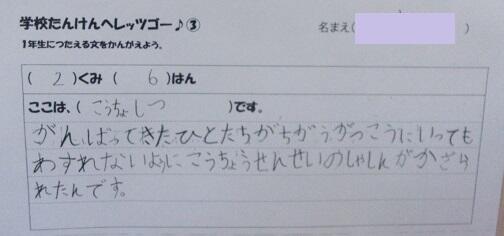 学校たんけんへレッツゴー♪③
名まえ( )
1年生につたえる文をかんがえよう。
( 2 )くみ ( 6 )はん
ここは、( こうちょしつ )です。
がんばってきたひとたちがちがうがっこうにいっても
わすれないように こうちょうせんせいのしゃしんがかざら
れたんです。